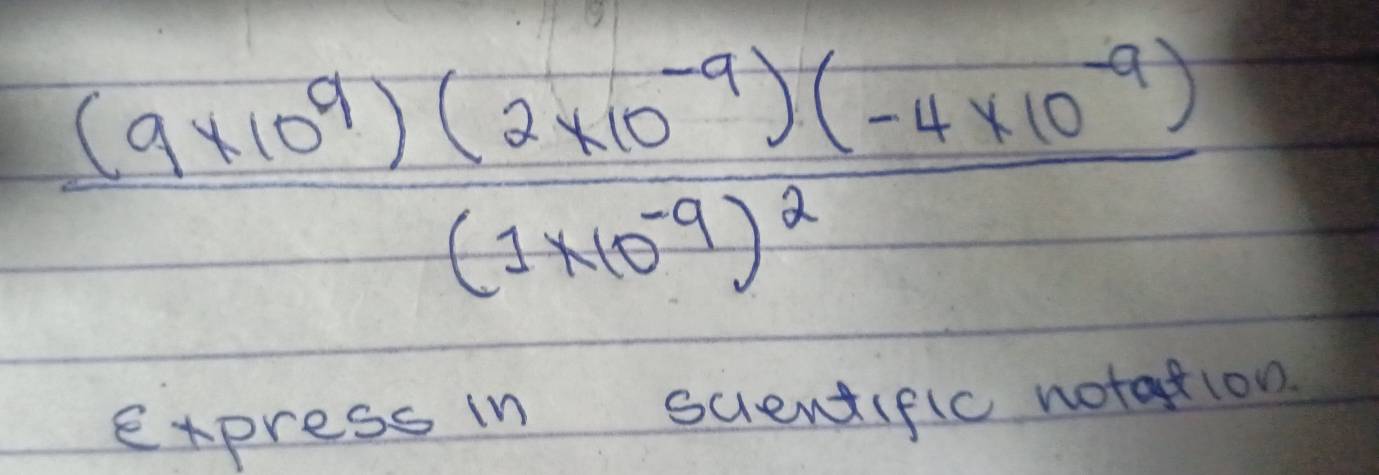 (9×10⁹)(2×10⁻⁹)(-4×10⁻⁹)
(1×10⁻⁹)²
Express in scientific notation.